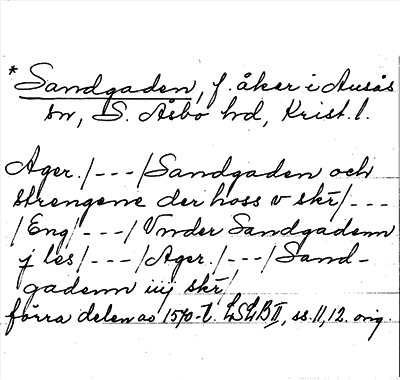 * Sandgaden, f. åker i Ausås
sn, S. Åsbo hd, Krist. l.
Ager. /---/ Sandgaden och
strengene der hoss v skr /---
/ Eng /---/ Vnder Sandgadenn
j les /---/ Ager. /---/ Sand-
gadenn iiij skr /
förra delen av 1570-t. LSLB II, ss. 11, 12. orig.